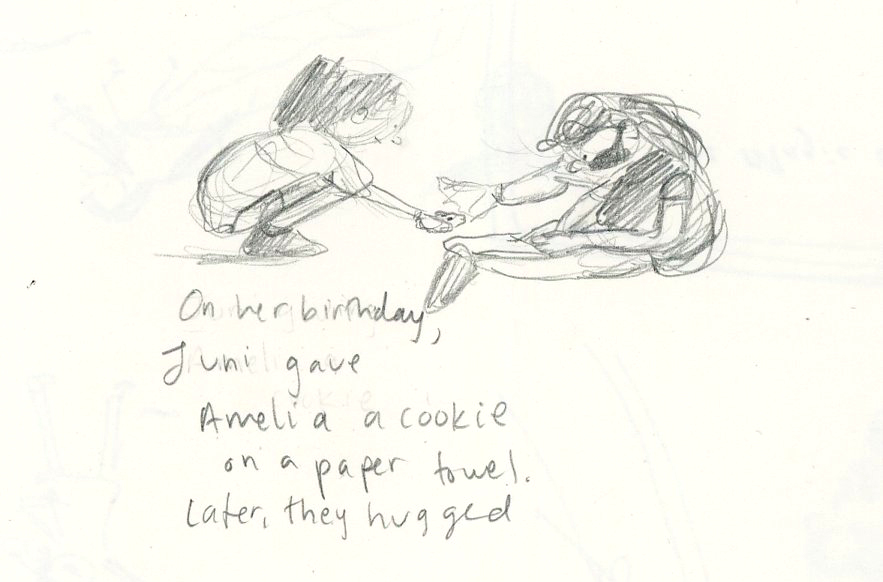 On her birthday,
Juni gave
Amelia a cookie
on a paper towel.
Later, they hugged